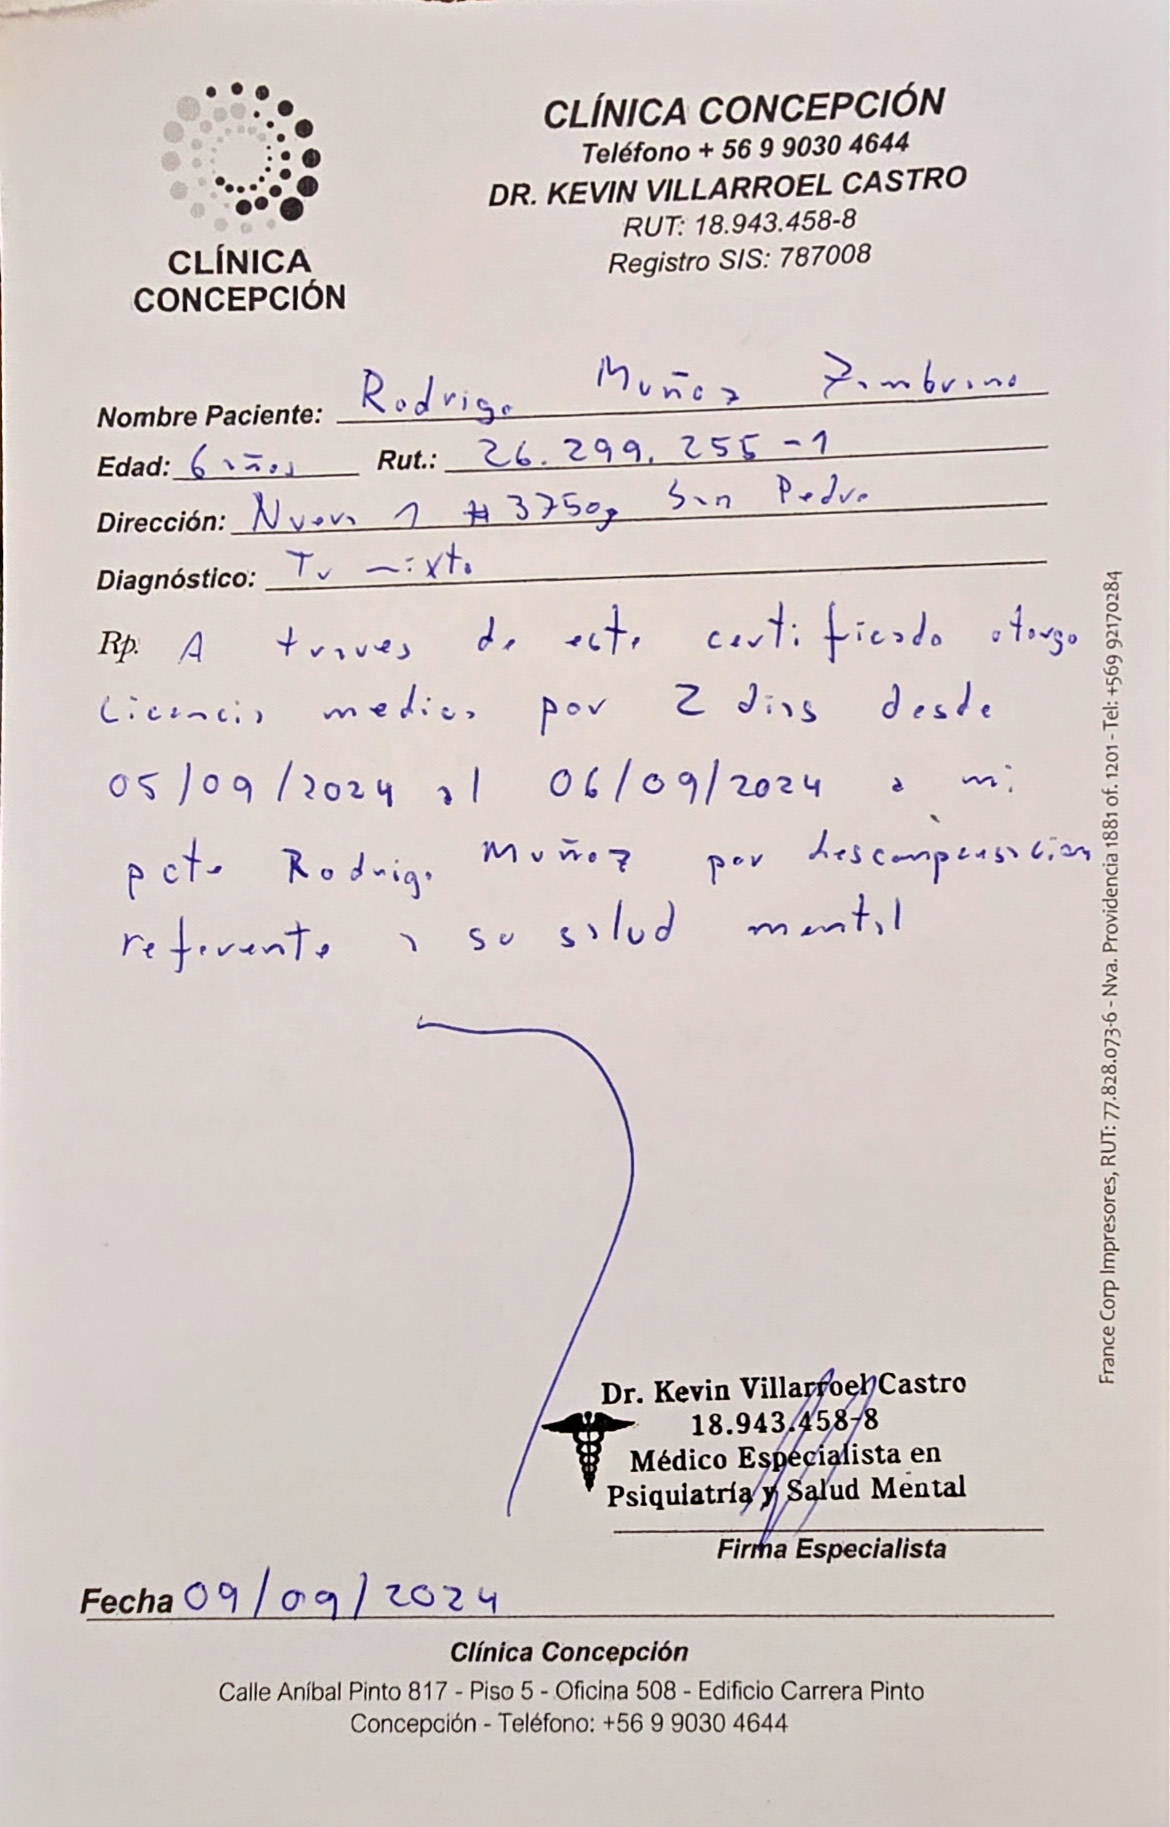 CLÍNICA
CONCEPCIÓN
CLÍNICA CONCEPCIÓN
Teléfono + 56 9 9030 4644
DR. KEVIN VILLARROEL CASTRO
RUT: 18.943.458-8
Registro SIS: 787008
Nombre Paciente: Rodrigo Muñoz Zambrano
Edad: 6 años Rut.: 26.299.255-1
Dirección: Nueva 1 # 3750, San Pedro
Diagnóstico: Tr mixto
Rp. A traves de este certificado otorgo
Licencia medica por 2 dias desde
05/09/2024 al 06/09/2024 a mi
pcte Rodrigo Muñoz por descompensacion
referente a su salud mental
Dr. Kevin Villarroel Castro
18.943.458-8
Médico Especialista en
Psiquiatría y Salud Mental
Firma Especialista
Fecha 09/09/2024
Clínica Concepción
Calle Aníbal Pinto 817 - Piso 5 - Oficina 508 - Edificio Carrera Pinto
Concepción - Teléfono: +56 9 9030 4644
France Corp Impresores, RUT: 77.828.073-6 - Nva. Providencia 1881 of. 1201 - Tel: +569 92170284